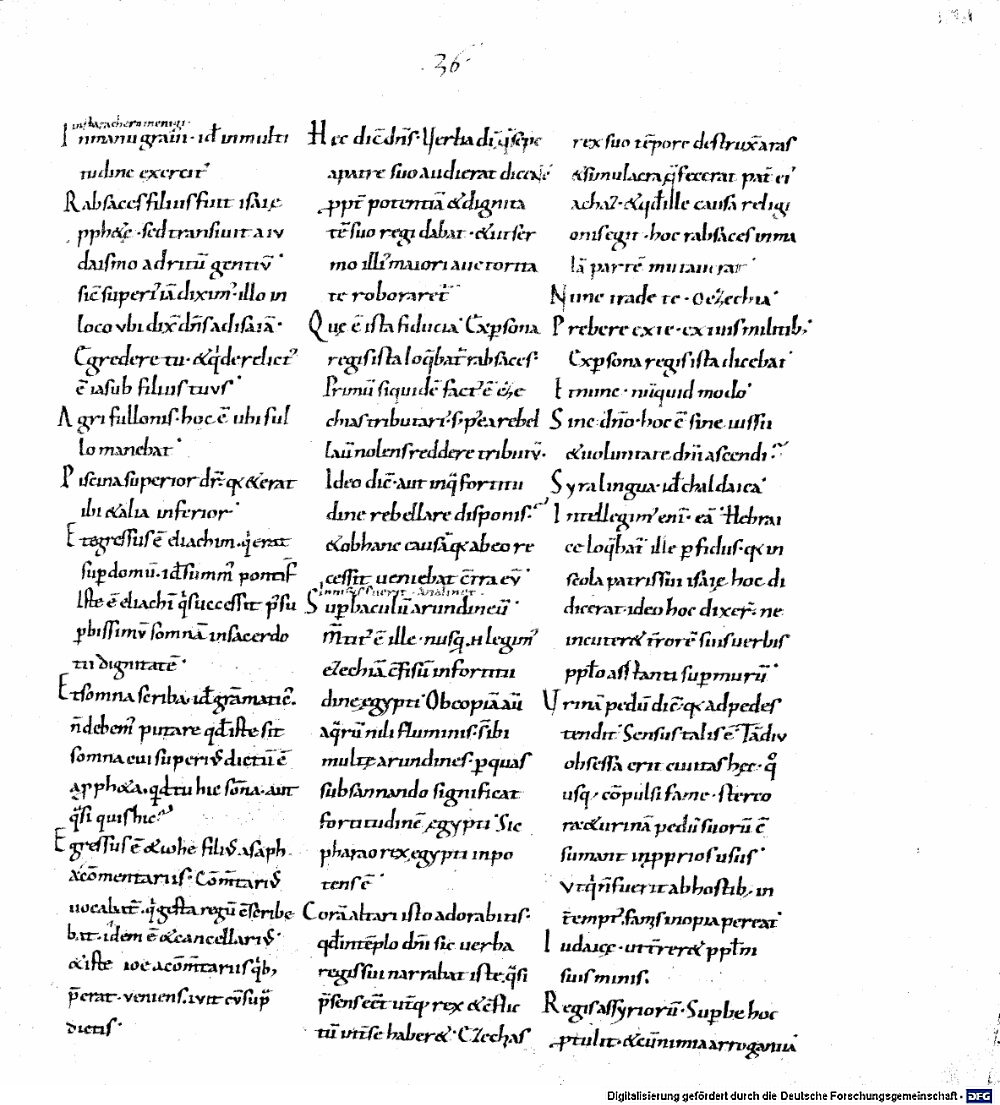 36
In manu graui · id ÷ in multi
tudine exercitus
Rabsaces filius fuit isaie
pph&e · sed transiuit a iu
daismo ad ritū gentiū ·
sic̄ superiꝰ iā diximꝰ · illo in
loco ubi dix̄ dn̄s ad isaiā ·
Egredere tu · & qͥ derelictꝰ
ē iasub filius tuus ·
Agri fullonis · hoc ē ubi ful
lo manebat ·
Piscina superior dr̄ · qa & erat
ibi & alia inferior ·
Et egressus ē eliachim · qͥ erat
sup domū · id ÷ summꝰ pontif
Iste ē eliachī qͥ successit p̄su
pbissimū somnā in sacerdo
tii dignitatē ·
Et somna scriba · id ÷ grāmaticꝰ ·
n̄ debemꝰ putare qd iste sit
somna cui superiꝰ dictū ē
a pph&a · qd tu hic · son̄a · aut
qͣsi quis hic
Egressus ē & iohe filiꝰ asaph
a cōmentariis · Cōm̄tariꝰ
uocabat̄ · qͥ gesta regū c̄scribe
bat · idem ē & cancellariꝰ ·
& iste ioe a cōm̄tariis qͥb;
p̄erat · ueniens · iuit cū sup
dictis ·
Hec dic̄ dn̄s · Uerba dī · qͣ sepe
a patre suo audierat dicere
ppt̄ potentiā & dignita
tē suo regi dabat · & ut ser
mo illiꝰ maiori auctorita
te roborar&̄
Que ē ista fiducia · Ex psona
regis ista loqͣbat̄ rabsaces ·
Primū siquidē factꝰ ē eze
chias tributariꝰ · s; p̄ea rebel
lauit nolens reddere tributū ·
Ideo dic̄ · aut in qͣ fortitu
dine rebellare disponis ·
& ob hanc causā · qa ab eo re
cessit ueniebat c̄tra eū ·
Sup baculū arundineū ·
Mentitꝰ ē ille · nusq̄ · n̄ legimꝰ
ezechiā c̄fisū in fortitu
dine egypti · Ob copiā au̅
aqͣrū nili fluminis · s̄ ibi
multe arundines · p quas
subsannando significat
fortitudinē egypti · Sic
pharao rex egypti inpo
tens ē ·
Corā altari isto adorabitis ·
qd in tēplo dn̄i sic uerba
regis sui narrabat iste · qͣsi
p̄sens eet̄ utq; rex & c̄flic
tū int̄ se haber& · Ezechias
rex suo tēpore destrux̄ aras
& simulacra q̄ fecerat pat̄ eiꝰ
achaz · & qd ille causa religi
onis egit · hoc rabsaces in ma
lā partē mutauerat ·
Nunc trade te · o ezechia ·
Prebere ex te · ex tuis militib; ·
Ex psona regis ista dicebat ·
Et nunc · nūquid modo ·
Sine dn̄o · hoc ē sine iussu
& uoluntate dn̄i ascendi ·
Syra lingua · id ÷ chaldaica ·
Intellegimꝰ eni̅ · eā · Hebrai
ce loqͣbat̄ ille pfidus · qa in
scola patris sui isaie hoc di
dicerat · ideo hoc dixer̄ · ne
incuter& t̄rorē suis uerbis
pplo asstanti sup murū ·
Urinā pedū dic̄ · qa ad pedes
tendit · Sensus talis ē · Tādiu
obsessa erit ciuitas hec · qͦ
usq; cōpulsi fame · sterco
ra & urinā pedū suorū c̄
sumant in pprios usus ·
Ut qͥ n̄ fuerit ab hostib; in
t̄emptꝰ · famis inopia pereat ·
Iudaice · ut t̄rer& pplm
suis minis ·
Regis assyriorū · Supbe hoc
ptulit · & cū nimia arrogantiā
Digitalisierung gefördert durch die Deutsche Forschungsgemeinschaft - DFG